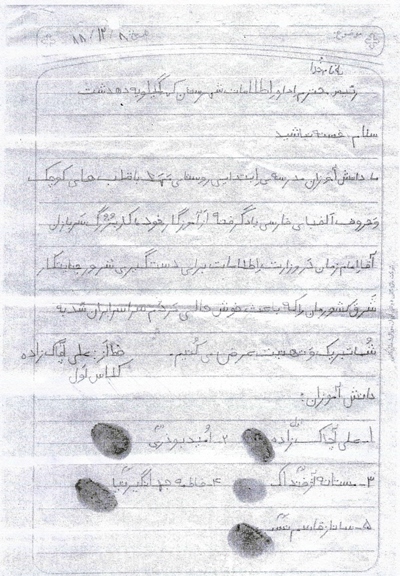 موضوع: تاریخ ۸۸/۱۲/۸
بنام خدا
رئیس محترم اداره اطلاعات شهرستان کهگیلویه دهدشت
سلام. خسته نباشید
ما دانش آموزان مدرسه ی ابتدایی روستای با قلب های کوچک
و حروف الفبای فارسی یادگرفته از آموزگار خود، کار بزرگ سربازان
آقا امام زمان در وزارت اطلاعات برای دستگیری شرور جنایتکار
شرق کشورمان را که باعث خوش حالی مردم سراسر ایران شد به
شما تبریک و تهنیت عرض می کنیم. خط از: علی آچاک زاده
کلاس اول
دانش آموزان:
۱- علی آچاک زاده ۲- امید بودری
۳- مستانه ۴- فاطمه جهانگیر نیا
۵- ساناز قاسم